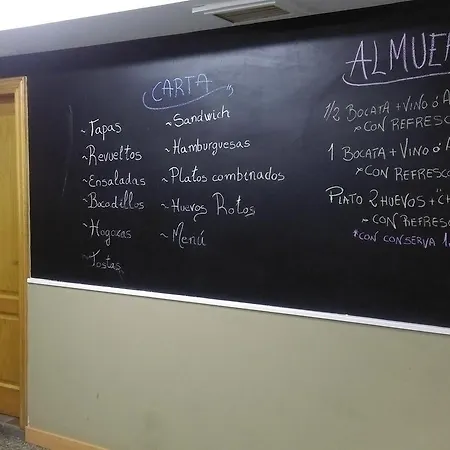 CARTA
~Tapas
~Revueltos
~Ensaladas
~Bocadillos
~Hogazas
~Tostas
~Sandwich
~Hamburguesas
~Platos combinados
~Huevos Rotos
~Menú
ALMUE
1/2 BOCATA + VINO ó A
CON REFRESC
1 BOCATA + VINO ó A
CON REFRESCO
PLATO 2 HUEVOS + "CH
CON REFRESC
*CON CONSERVA 1.